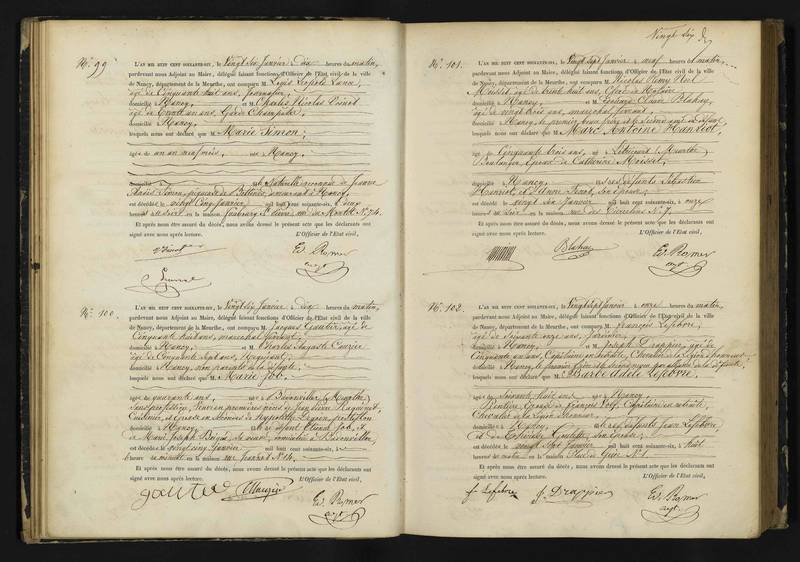 N.º 99
L'AN MIL HUIT CENT SOIXANTE-SIX, le Vingt six Janvier à dix heures du matin,
pardevant nous Adjoint au Maire, délégué faisant fonctions d'Officier de l'Etat civil de la ville
de Nancy, département de la Meurthe, ont comparu M. Louis Léopold
âgé de Cinquante huit ans, Journalier,
domicilié à Nancy, et M. Charles Nicolas
âgé de ans, Garde Champêtre,
domicilié à Nancy,
lesquels nous ont déclaré que Marie Simon,
âgée de un an, née à Nancy,
domicilié fille Naturelle reconnue de Jeanne
Marie Simon, piqueuse de Bottines, demeurant à Nancy,
est décédée le vingt cinq Janvier mil huit cent soixante-six, à deux
heures du soir en la maison faubourg St Pierre, rue de N.º 74.
Et après nous être assuré du décès, nous avons dressé le présent acte que les déclarants ont
signé avec nous après lecture. L'Officier de l'Etat civil,
Ed. Romer
adjt
N.º 100.
L'AN MIL HUIT CENT SOIXANTE-SIX, le Vingt six Janvier à dix heures du matin,
pardevant nous Adjoint au Maire, délégué faisant fonctions d'Officier de l'Etat civil de la ville
de Nancy, département de la Meurthe, ont comparu M. Jacques Gautier, âgé de
Cinquante huit ans, maréchal ferrant,
domicilié à Nancy, et M. Charles Auguste
âgé de Cinquante sept ans, Négociant,
domicilié à Nancy, non parents de la défunte,
lesquels nous ont déclaré que Marie Job,
âgée de quarante ans, née à Bénonville (Meurthe)
Sans profession, Veuve en premières noces de Jean Pierre
Cuisinier, et Epouse en secondes de
domicilié à Nancy, fille de défunt Etienne Job, et
de Marie Joseph sa veuve, domiciliée à
est décédée le vingt cinq Janvier mil huit cent soixante-six, à
heures de en la maison rue Jeannot N.º 14.
Et après nous être assuré du décès, nous avons dressé le présent acte que les déclarants ont
signé avec nous après lecture. L'Officier de l'Etat civil,
gautier
Ed. Romer
adjt
Vingt six
N.º 101.
L'AN MIL HUIT CENT SOIXANTE-SIX, le Vingt sept Janvier à neuf heures du matin,
pardevant nous Adjoint au Maire, délégué faisant fonctions d'Officier de l'Etat civil de la ville
de Nancy, département de la Meurthe, ont comparu M. Nicolas Rémy Noël
âgé de trente huit ans, Clerc de Notaire
domicilié à Nancy, et M. Blahay,
âgé de vingt trois ans, maréchal ferrant,
domicilié à Nancy, le premier beau frère et le second ami du défunt,
lesquels nous ont déclaré que Marc Antoine
âgé de Cinquante trois ans, né à (Meurthe)
Boulanger, Epoux de Catherine
domicilié à Nancy, fils de défunts Sébastien
et d'Anne son épouse,
est décédé le vingt six Janvier mil huit cent soixante-six, à onze
heures du soir en la maison rue des N.º 7.
Et après nous être assuré du décès, nous avons dressé le présent acte que les déclarants ont
signé avec nous après lecture. L'Officier de l'Etat civil,
Blahay
Ed. Romer
adjt
N.º 102.
L'AN MIL HUIT CENT SOIXANTE-SIX, le Vingt sept Janvier à onze heures du matin,
pardevant nous Adjoint au Maire, délégué faisant fonctions d'Officier de l'Etat civil de la ville
de Nancy, département de la Meurthe, ont comparu M. François Lefebvre,
âgé de soixante onze ans,
domicilié à Nancy, et M. Joseph Drappier, âgé de
Cinquante ans, Capitaine en retraite, Chevalier de la Légion d'honneur
domicilié à Nancy, le premier frère et le second par alliance de la défunte,
lesquels nous ont déclaré que Barbe Adèle Lefebvre,
âgée de soixante huit ans, née à Nancy
Rentière, Epouse de François Capitaine en retraite,
Chevalier de la Légion d'honneur
domicilié à Nancy, fille de défunts Jean Lefebvre,
et de son épouse,
est décédée le vingt sept Janvier mil huit cent soixante-six, à huit
heures du matin en la maison N.º 1.
Et après nous être assuré du décès, nous avons dressé le présent acte que les déclarants ont
signé avec nous après lecture. L'Officier de l'Etat civil,
f. Lefebvre J. Drappier
Ed. Romer
adjt